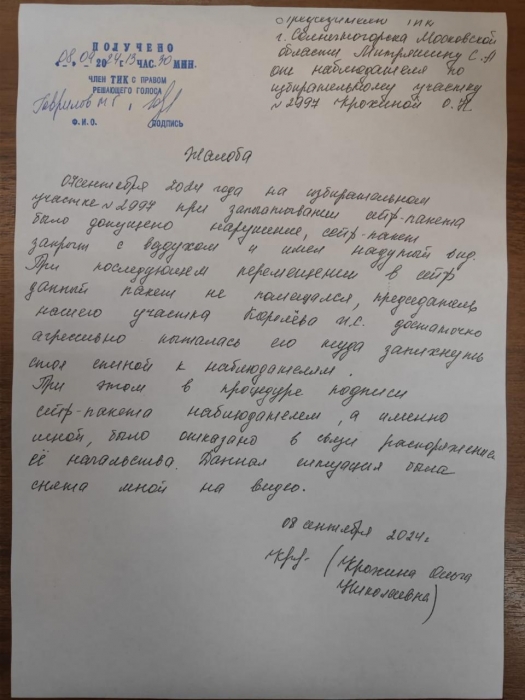 ПОЛУЧЕНО
08.09.2024 г. 13 ЧАС. 30 МИН.
ЧЛЕН ТИК С ПРАВОМ
РЕШАЮЩЕГО ГОЛОСА
Гаврилов
Ф.И.О. ПОДПИСЬ
Председателю ТИК
г. Солнечногорска Московской
области Митряшину С.А
от наблюдателя по
избирательному участку
№ 2997 Крохиной О.Н
Жалоба
07 сентября 2024 года на избирательном
участке № 2997 при запечатывании сейф-пакета
было допущено нарушение, сейф-пакет
закрыт с воздухом и имел надутый вид.
При последующем перемещении в сейф
данный пакет не помещался, председатель
нашего участка Королёва И.С. достаточно
агрессивно пыталась его туда запихнуть
стоя спиной к наблюдателям.
При этом в процедуре подписи
сейф-пакета наблюдателем, а именно
мной, было отказано в связи распоряжения
её начальства. Данная ситуация была
снята мной на видео.
08 сентября 2024г
(Крохина Ольга
Николаевна)